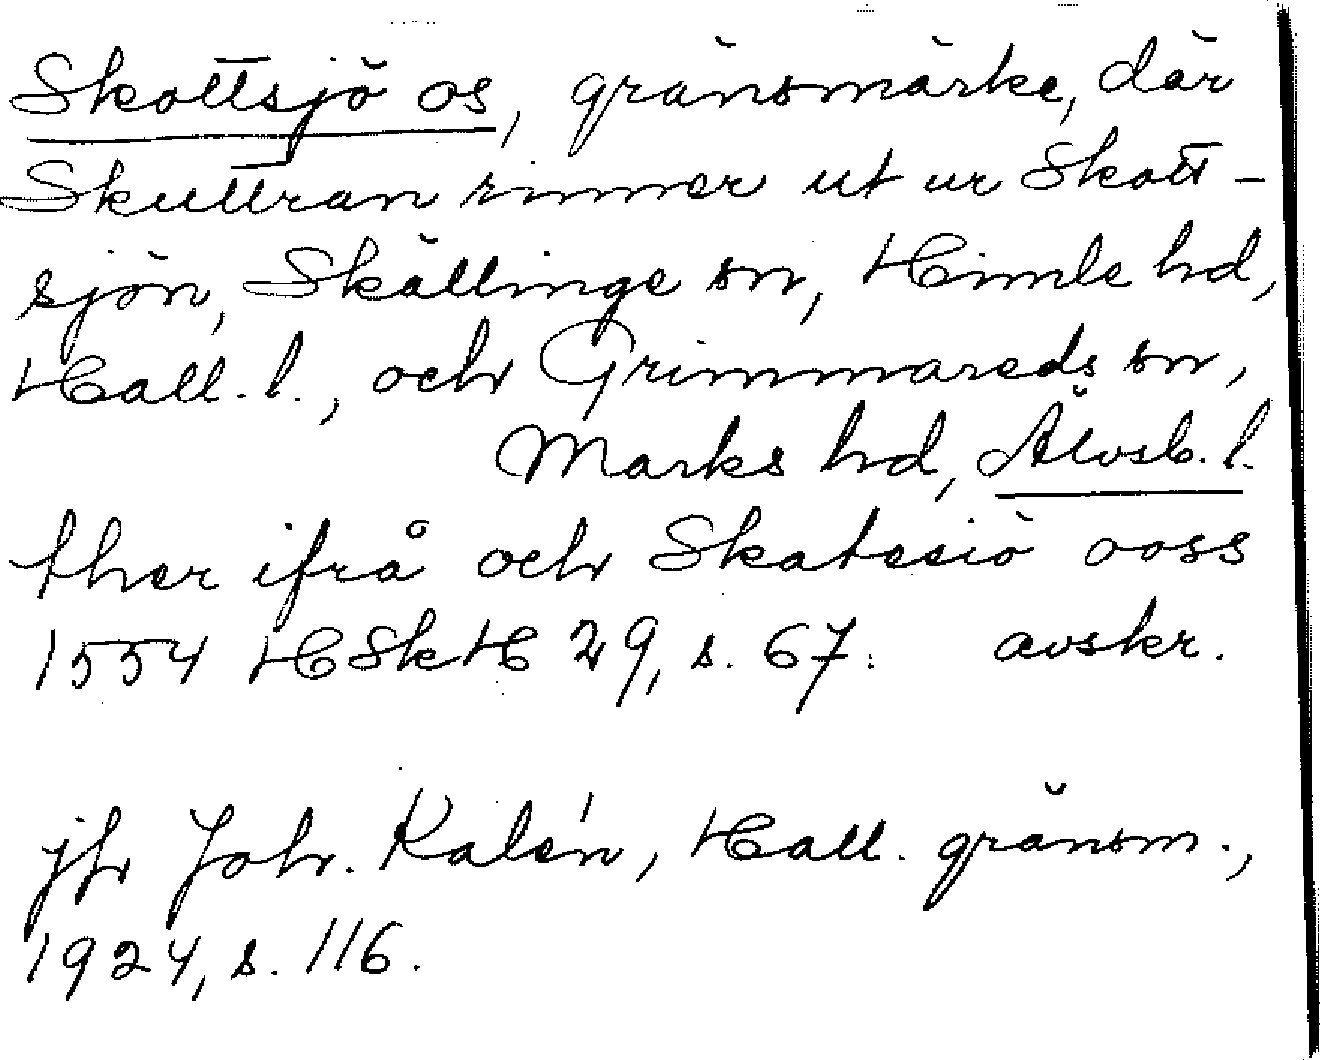 Skottsjö os, gränsmärke, där
Skuttran rinner ut ur Skott-
sjön, Skällinge sn, Himle hd,
Hall. l., och Grimmareds sn,
Marks hd, Älvsb. l.
ther ifrå och Skatesiö ooss
1554 HSkH 29, s. 67. avskr.
jfr Joh. Kalén, Hall. gränsm.,
1924, s. 116.